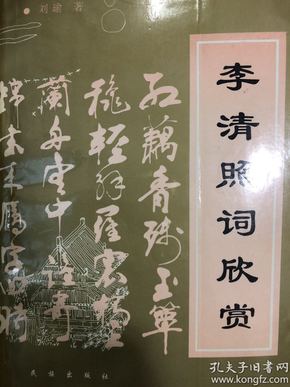 刘瑜 著
李清照词欣赏
红藕香残玉簟
秋轻解罗裳独
兰舟云中谁寄
锦书来雁字回时
民族出版社
孔夫子旧书网